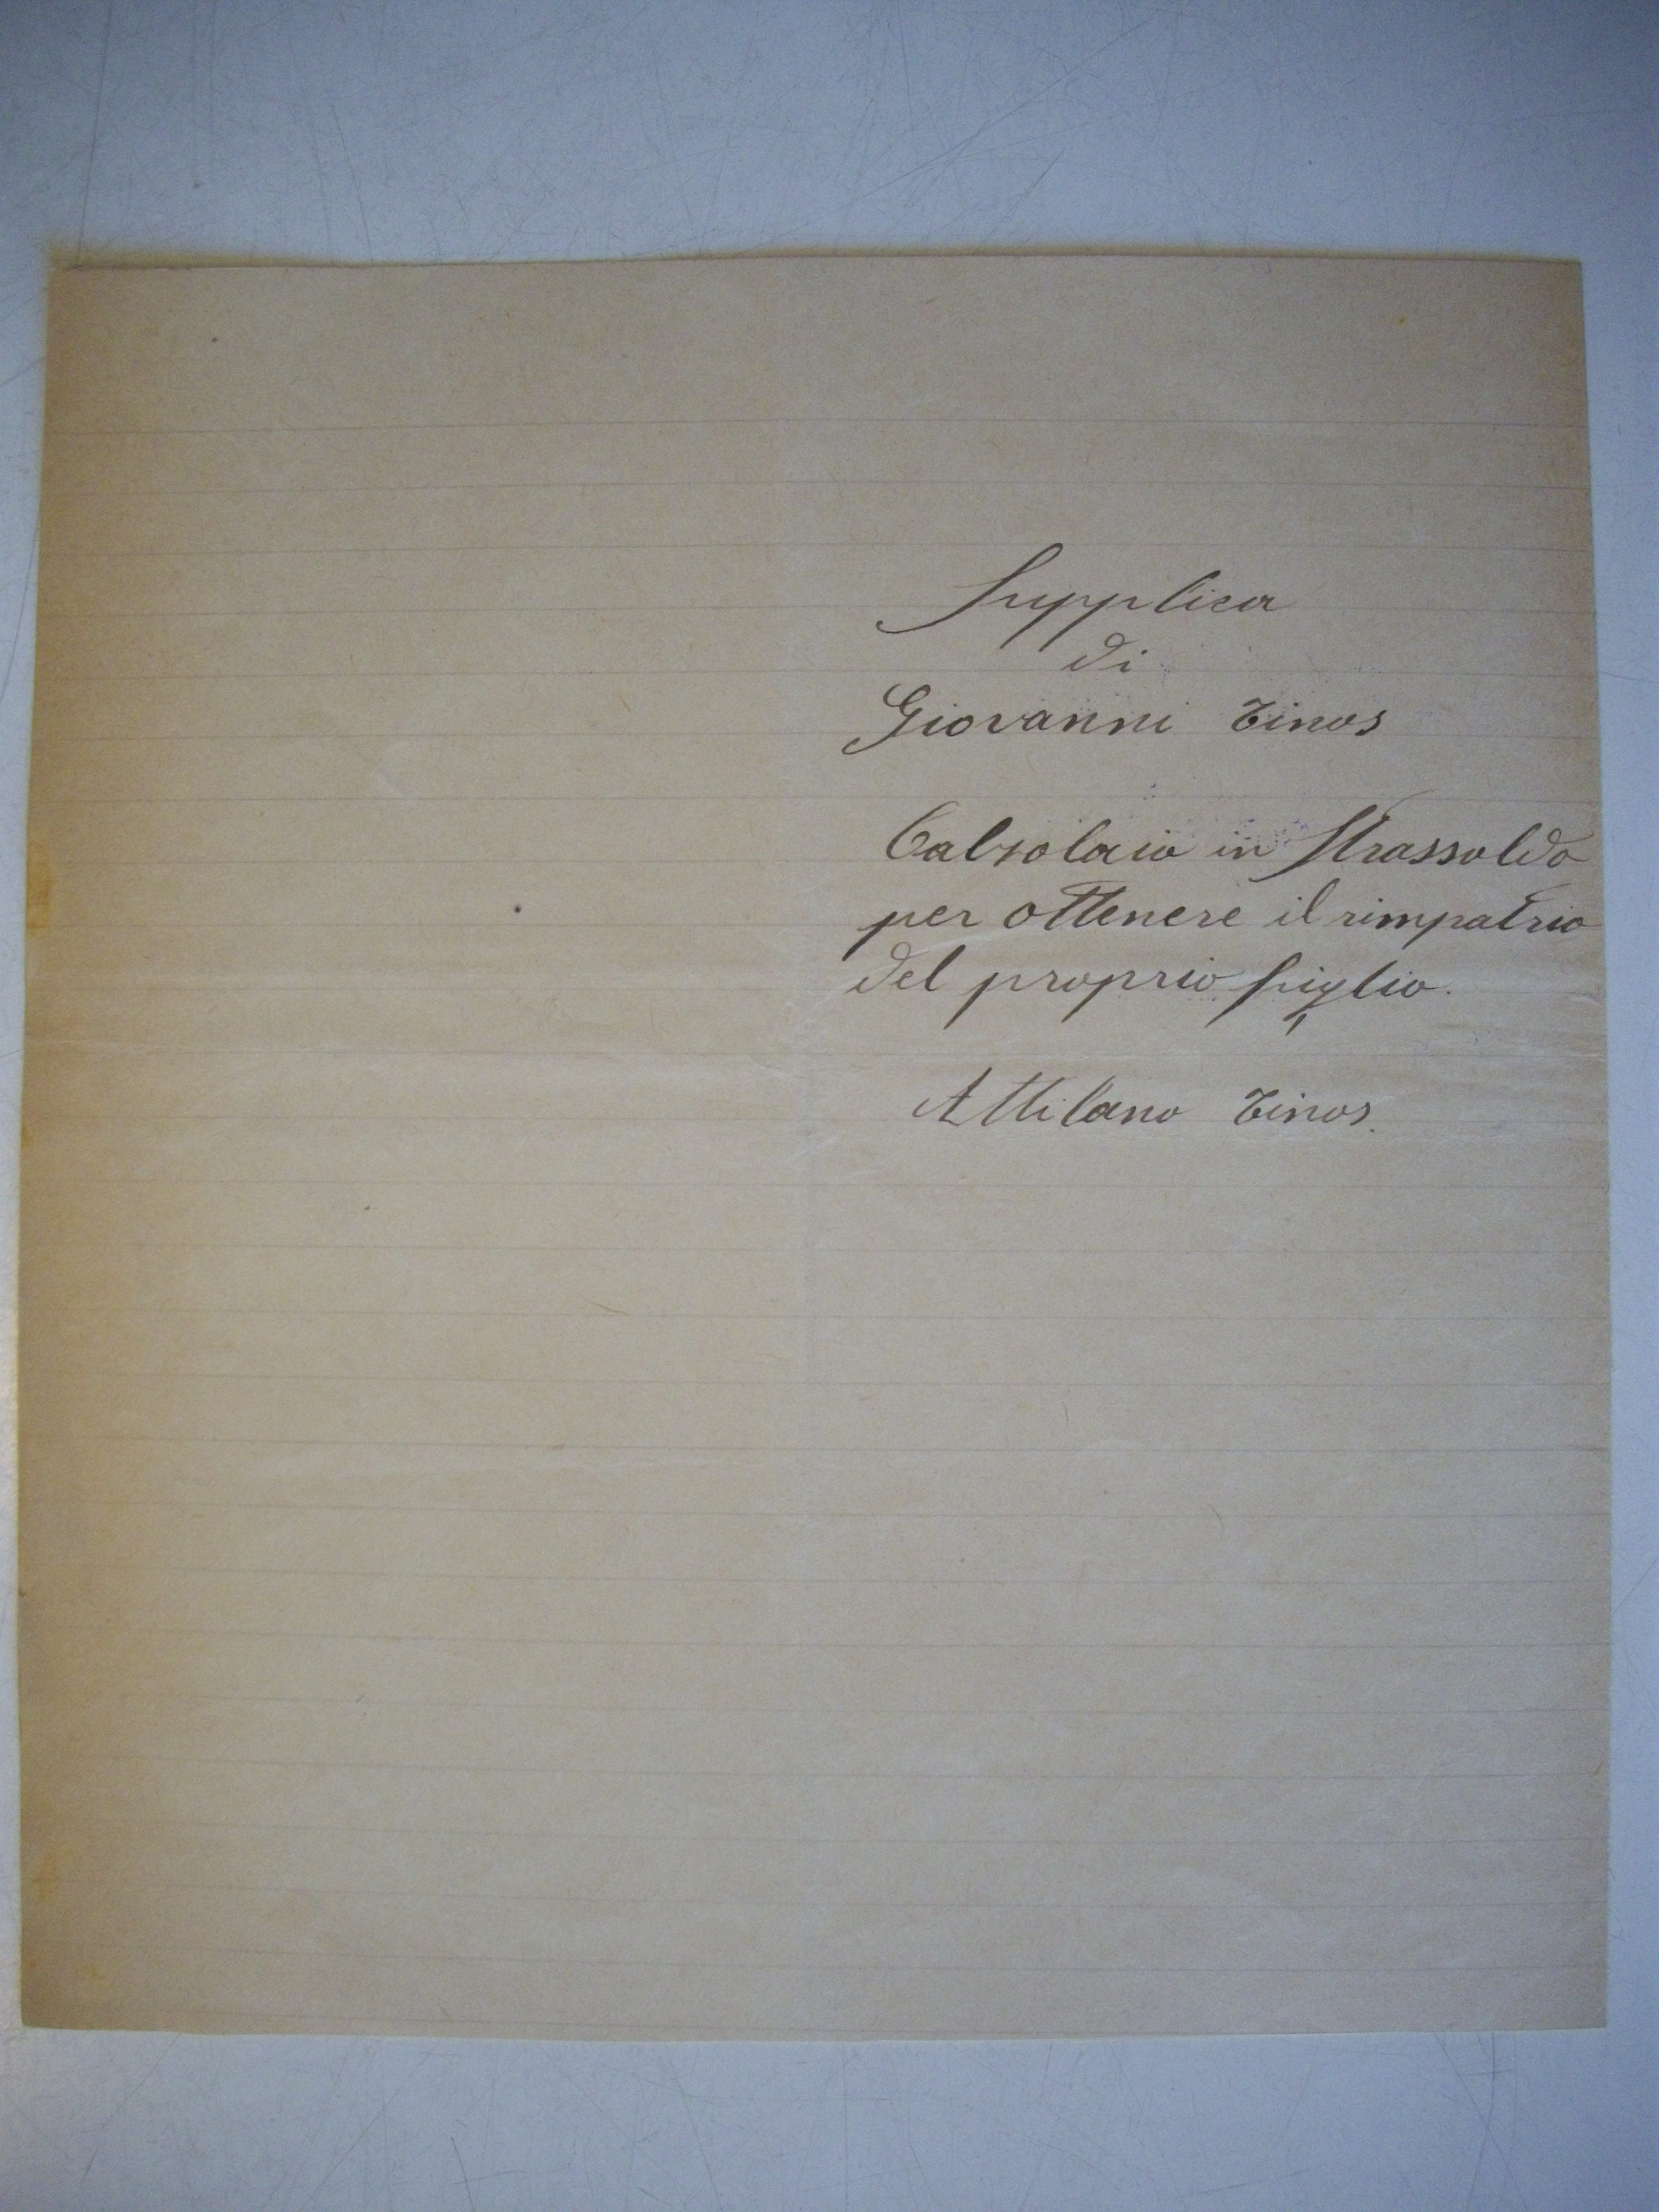 Supplica
di
Giovanni Tinos
Calzolaio in Strassoldo
per ottenere il rimpatrio
del proprio figlio.
Attilano Tinos.